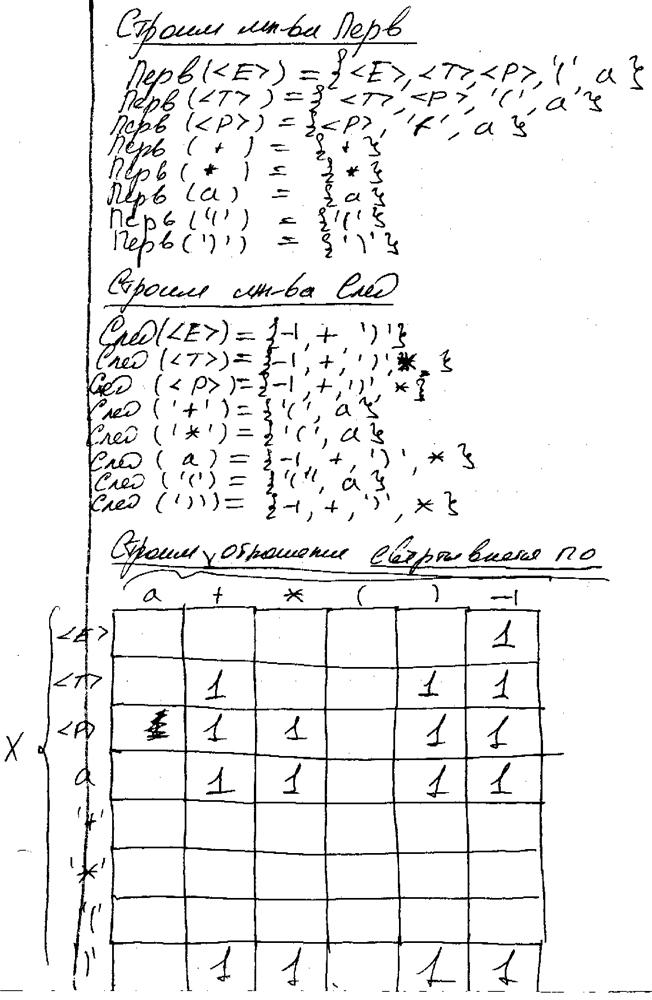 Строим мн-ва Перв
Перв (<E>) = {<E>, <T>, <P>, '(', a }
Перв (<T>) = { <T>, <P>, '(', a }
Перв (<P>) = { <P>, '(', a }
Перв ( + ) = { + }
Перв ( * ) = { * }
Перв (a) = { a }
Перв ('(') = { '(' }
Перв (')') = { ')' }
Строим мн-ва След
След (<E>) = { ⊣, +, ')' }
След (<T>) = { ⊣, +, ')', * }
След (<P>) = { ⊣, +, ')', * }
След ('+') = { '(', a }
След ('*') = { '(', a }
След ( a ) = { ⊣, +, ')', * }
След ('(') = { '(', a }
След (')') = { ⊣, +, ')', * }
Строим отношение свёртывается по
a + * ( ) ⊣
<E> 1
<T> 1 1 1
<P> 1 1 1 1
X
a 1 1 1 1
'+'
'*'
'('
')' 1 1 1 1